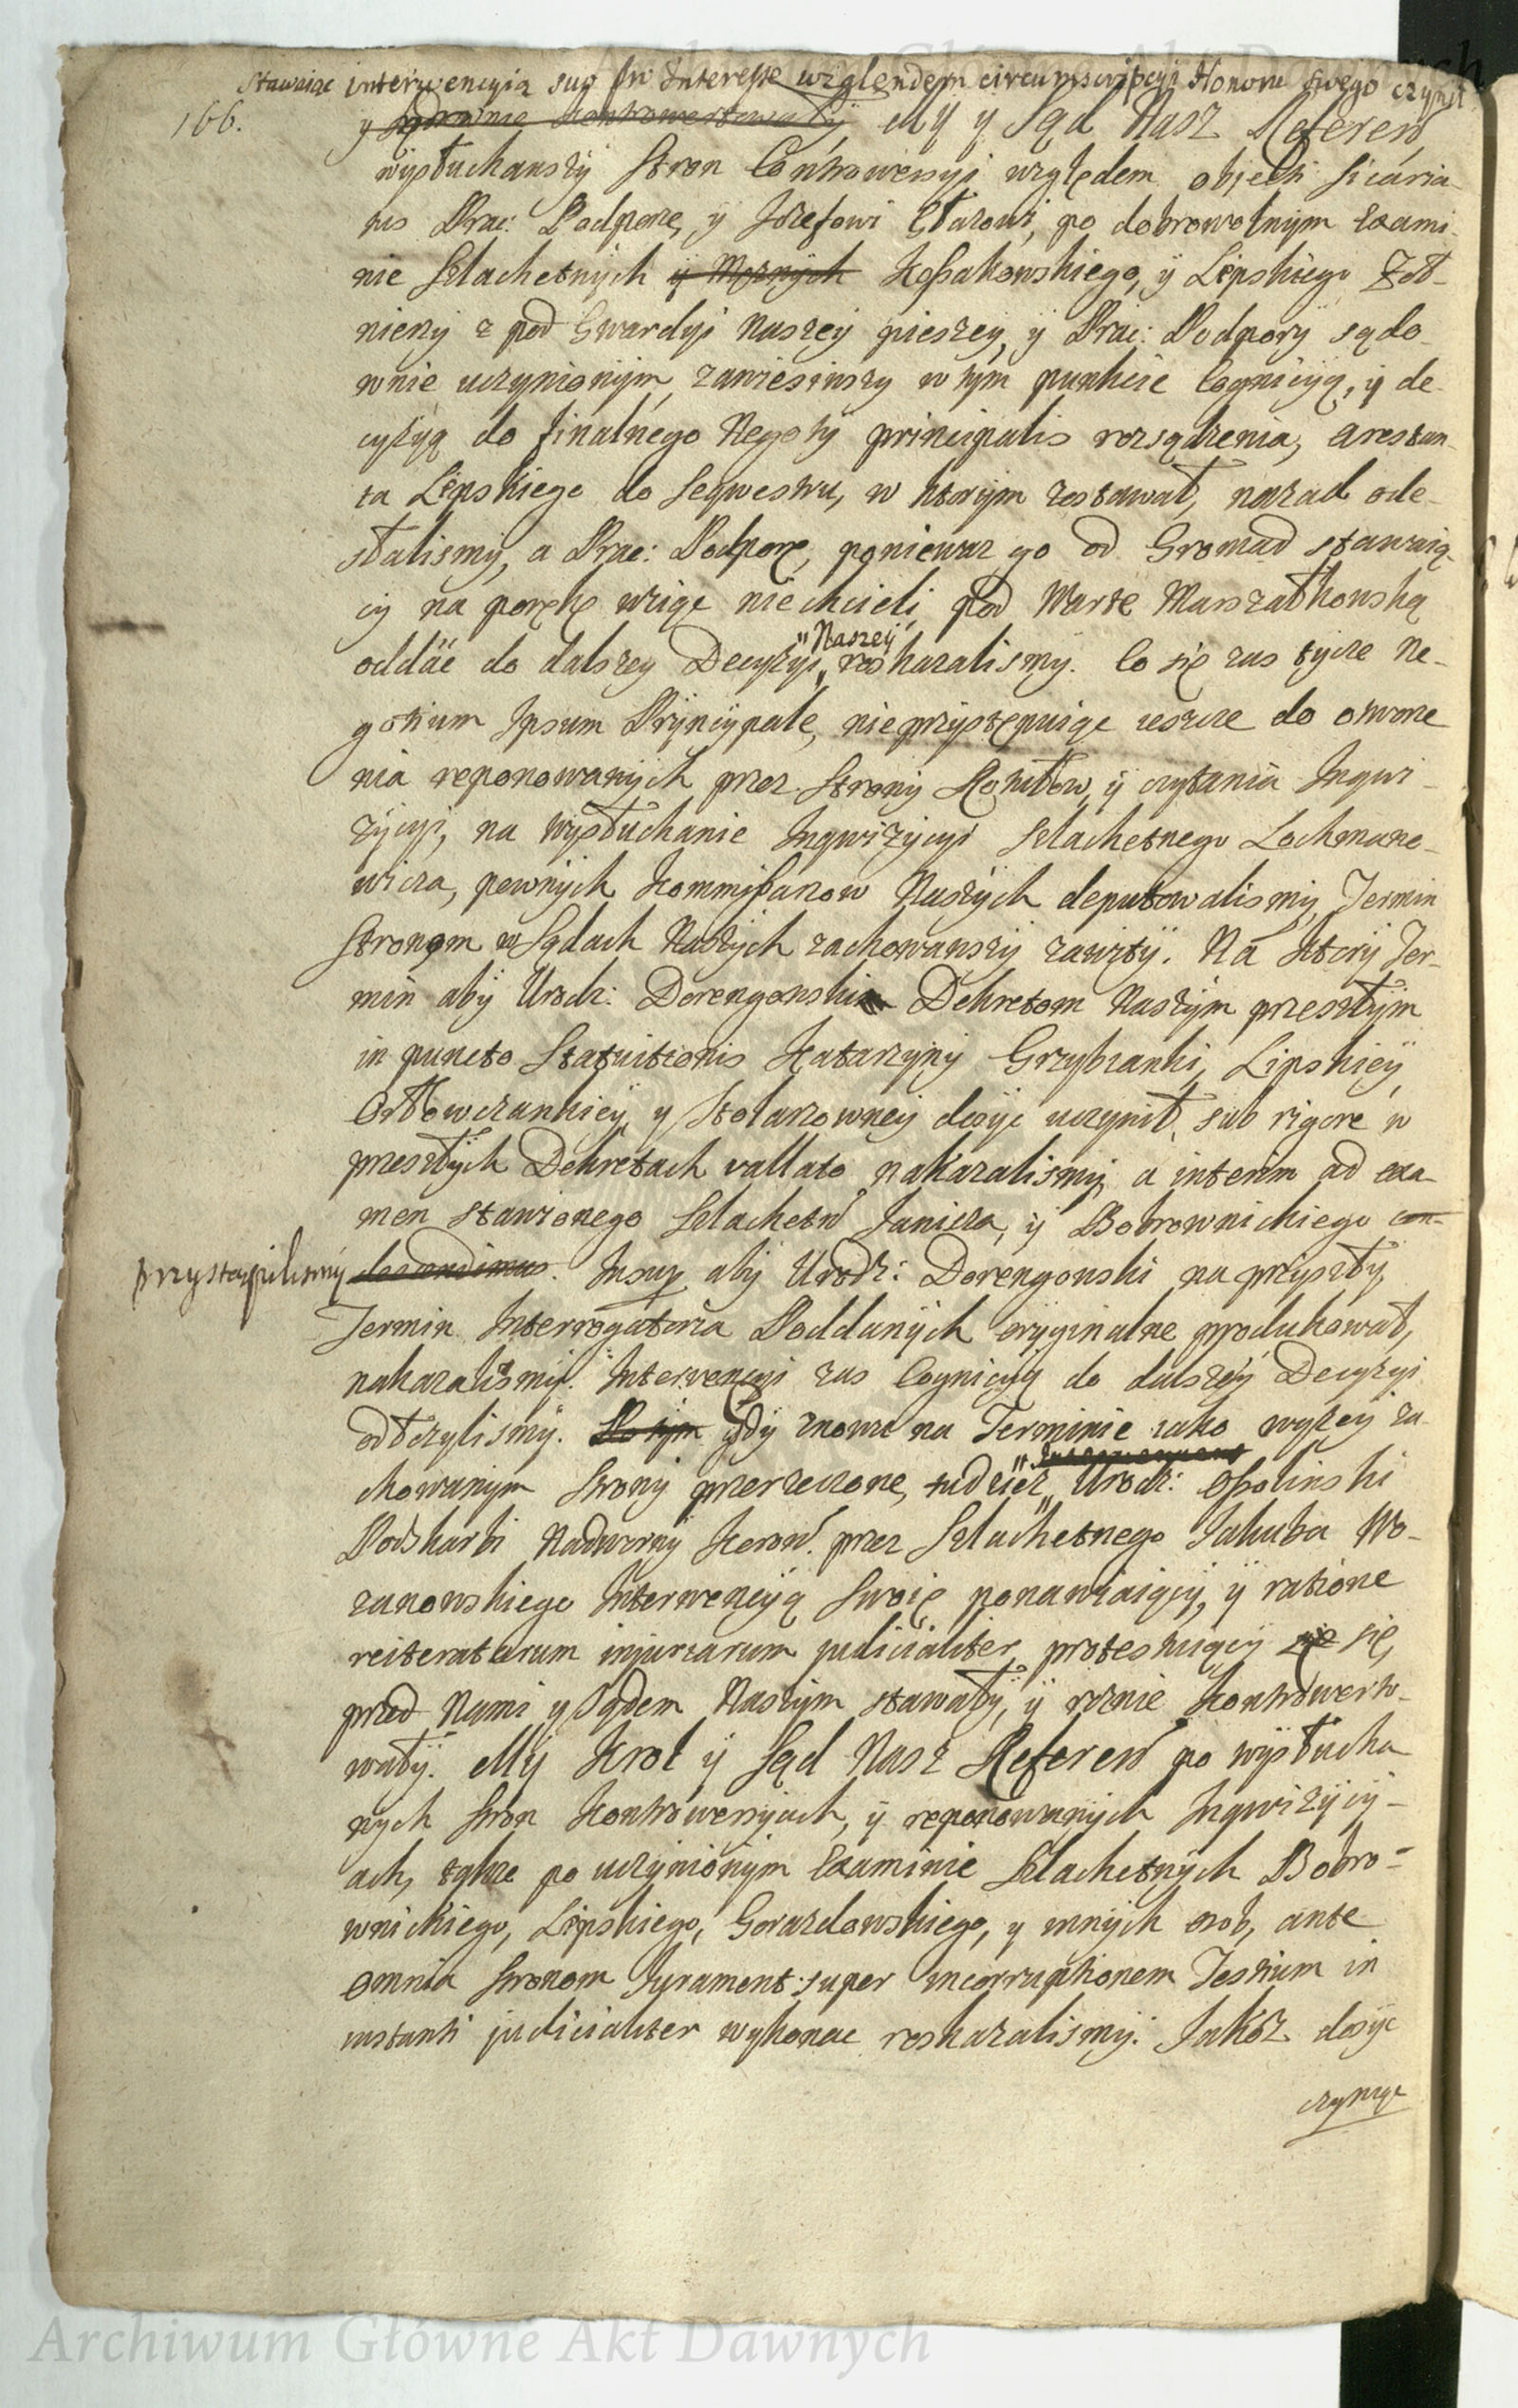 stawaiąc interwencyią suą pr. Interesse wzglendem circumscripcyi Honoru swego czynił
166.
y Sądownie kontrowertowały My y Sąd Nasz Referen̄
wysłuchawszy Stron Controwersyi względem objecti sicaria-
tus Prac: Podporze, y Jozefowi Głazowi, po dobrowolnym Exami-
nie Szlachetnych y Możnych Kossakowskiego, y Lipskiego Żoł-
nierzy z pod Gwardyi Naszey pieszey, y Prac: Podpory sądo-
wnie uczynionym, zawiesiwszy w tym punkcie Cognicyą, y de-
cyzyą do finalnego Negotÿ principalis rozsądzenia, Aresztan-
ta Lipskiego do Seqwestru, w ktorym zostawał, nazad ode-
słalismy, a Prac: Podporę, poniewaz go od Gromad stawaią-
cy na porękę wziąc niechcieli, pod Warte Marszałkowską
oddać do dalszey Decyzyi „ roskazalismy. Co się zas tycze Ne-
„Naszey
gotium Ipsum Pryncypale, nieprzystępuiąc ieszcze do otworze
nia reponowanych przez Strony Rotułow, y czytania Inqwi-
zycyi, na wysłuchanie Inqwizycyi Szlachetnego Lochmano-
wicza, pewnych Kommissarzow Naszych deputowalismy, Termin
Stronom w Sądach Naszych zachowawszy zawity. Na ktory Ter-
min aby Urodz: Derengowski Dekretom Naszym przeszłym
in puncto Statuitionis Katarzyny Grzybzanki, Lipskiey,
Orłowczankiey, y Stolarzowney dosyc uczynił, sub rigore w
przeszłych Dekretach vallato nakazalismy, a interim ad exa-
men stawionego Szlachetn̄ Janicza, y Bobrownickiego con-
przystąpilismy descendimus. Insup̱ aby Urodz: Derengowski na przyszły
Termin Interrogatoria Poddanych oryginalne produkował,
nakazalismy. Interwencyi zas Cognicyą do dalszey Decyzyi
odłożylismy. Po tym gdy znowu na Terminie iako wyżey za-
chowanym Strony przerzeczone, tudziez „ Urodz: Ossolinski
Podskarbi Nadworny Koron̄. przez Szlachetnego Jakuba Wo-
zanowskiego Interwencyą Swoię ponawiaiący, y ratione
reiteratarum injuriarum judicialiter protestuiący się,
przed Nami y Sądem Naszym stawały, y roznie kontrowerto-
wały. My Krol y Sąd Nasz Referen̄ po wysłucha
nych Stron Kontrowersyiach, y reponowanych Inqwizycy-
ach, tykze po uczynionym Examinie Szlachetnych Bobro-
wnickiego, Lipskiego, Gorazdowskiego, y innych osob, ante
omnia Stronom Jurament super incorruptionem Testium in
instanti judicialiter wykonac roskazalismy. Jakoz dosyc
czyniąc
Archiwum Główne Akt Dawnych